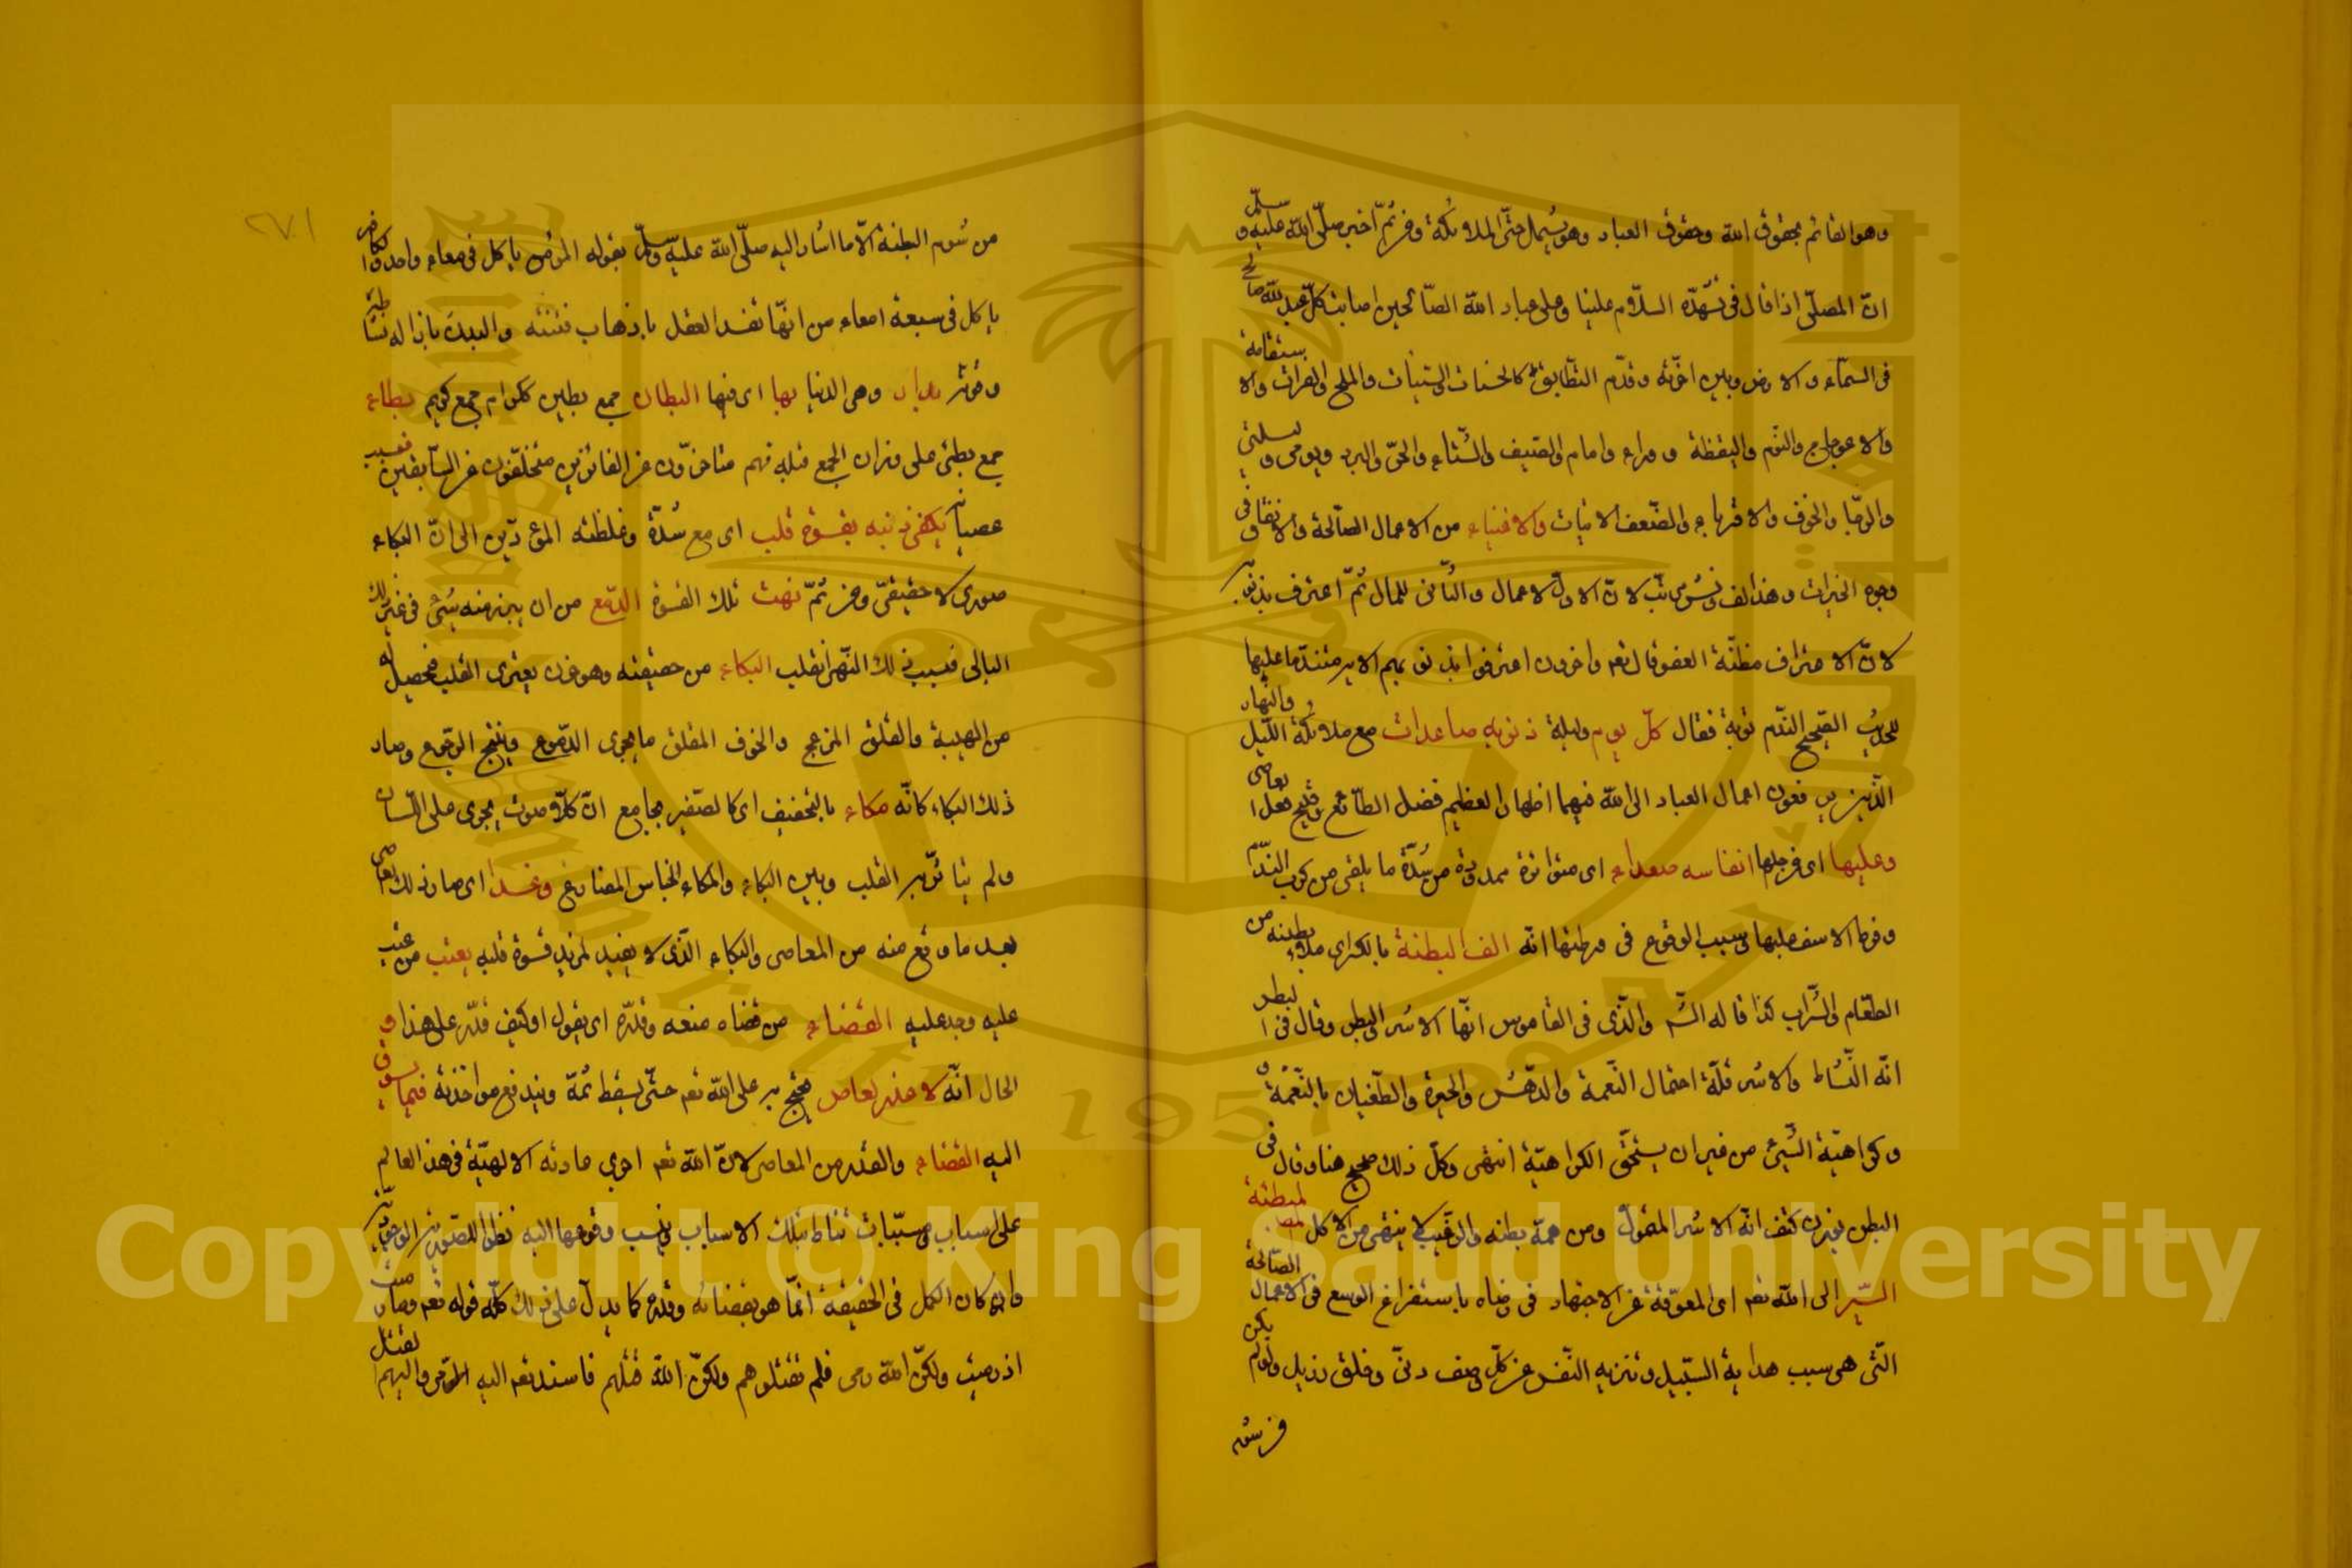 وهو القائم بحقوق الله وحقوق العباد وهو يشمل حتى الملائكة ومن ثم اخبر صلى الله عليه وسلم
ان المصلى اذا قال فى تشهده السلام علينا وعلى عباد الله الصالحين اصابت كل عبد لله صالح
فى السماء والارض وبين اخوته وقدم التطابق كالحسنات والسيئات والملح والفرات والاستقامة
والاعوجاج والنوم واليقظة ووراء وامام والصيف والشتاء والحر والبرد ويومى وليلتى
والرجا والخوف والاقرباء والضعف الاتيات والاغنياء من الاعمال الصالحة والانفاق فى
وجوه الخيرات وهذا لف ونشر مرتب لان الاول للاعمال والثانى للمال ثم اعترف بذنوبه
لان الاعتراف مظنة العفو قال تعم واخرون اعترفوا بذنوبهم الاية متندما عليها
للحديث الصحيح الندم توبة فقال كل يوم وليلة ذنوبه صاعدات مع ملائكة الليل والنهار
الذين يرفعون اعمال العباد الى الله فيهما اظهارا لعظيم فضل الطائع وقبيح فعل العاصى
وعليها اى من اجلها انفاسه صعداء اى متواترة ممدودة من شدة ما يلقى من كرب الندم
وفرط الاسف عليها وسبب الوقوع فى ورطتها انه الف البطنة بالكسر اى ملاء بطنه من
الطعام والشراب كذا قاله الش والذى فى القاموس انها الاشر والبطر وقال فى البطر
انه النشاط والاشر قلة احتمال النعمة والدهش والحيرة والطغيان بالنعمة و
وكراهية الشيئ من غير ان يستحق الكراهية انتهى وكل ذلك صحيح هنا وقال فى
البطن بوزن كتف انه الاشر المتمول ومن همه بطنه والرغيب لا ينتهى من الاكل لمبطنة
السير الى الله تعم اى المعوقة عن الاجتهاد فى رضاه باستفراغ الوسع فى الاعمال الصالحة
التى هى سبب هداية السبيل وتنزيه النفس عن كل وصف دنى وخلق رذيل ولو لم يكن
من شوم
من شوم البطنة الا ما اشار اليه صلى الله عليه وسلم بقوله المؤمن ياكل فى معاء واحد والكافر
ياكل فى سبعة امعاء من انها تفسد العقل باذهاب فطنته والبدن بازالة نشاطه
وتوثر بدار وهى الدنيا بها اى فيها البطان جمع بطين ككرام جمع كريم بطاء
جمع بطئ على وزان الجمع قبله فهم متاخرون عن الفائزين متخلفون عن السابقين فبسبب
عصيانه يبكى ذنبه بقسوة قلب اى مع شدة وغلظته المؤديين الى ان البكاء
صورى لا حقيقى ومن ثم نهت تلك القسوة الدمع من ان يبرز منه شئ فى عين ذلك
الباكى فبسبب ذلك النهى انقلب البكاء من حقيقته وهو حزن يعترى القلب فيحصل له
من الهيبة والقلق المزعج والخوف المقلق ما يجرى الدموع وينتج الرجوع وصار
ذلك البكاء كانه مكاء بالتخفيف اى كالصفير بجامع ان كلا صوت يجرى على اللسان
ولم يتاثر به القلب وبين البكاء والمكاء الجناس المضارع وغدا اى صار ذلك العاصى
بعد ما وقع منه من المعاصى والبكاء الذى لا يفيد لمزيد قسوة قلبه يعتب من عتب
عليه وجد عليه القضاء من قضاه صنعه وقدره اى يقول او كيف قدر على هذا و
الحال انه لا عذر لعاص يحتج به على الله تعم حتى يسقط ثمه ويندفع مواخذته فيما يسوق
اليه القضاء والقدر من المعاصى لان الله تعم اجرى عادته الالهية فى هذا العالم
على اسباب ومسببات تناط بتلك الاسباب وينسب وقوعها اليه نظرا للصورة الوجودية
وان كان الكل فى الحقيقة انما هو بقضائه وقدره كما يدل على ذلك كله قوله تعم وما رميت
اذ رميت ولكن الله رمى فلم تقتلوهم ولكن الله قتلهم فاسند تعم اليه الرمى واليهم القتل
٢٧١
King Saud University
1957
Copyright © King Saud University